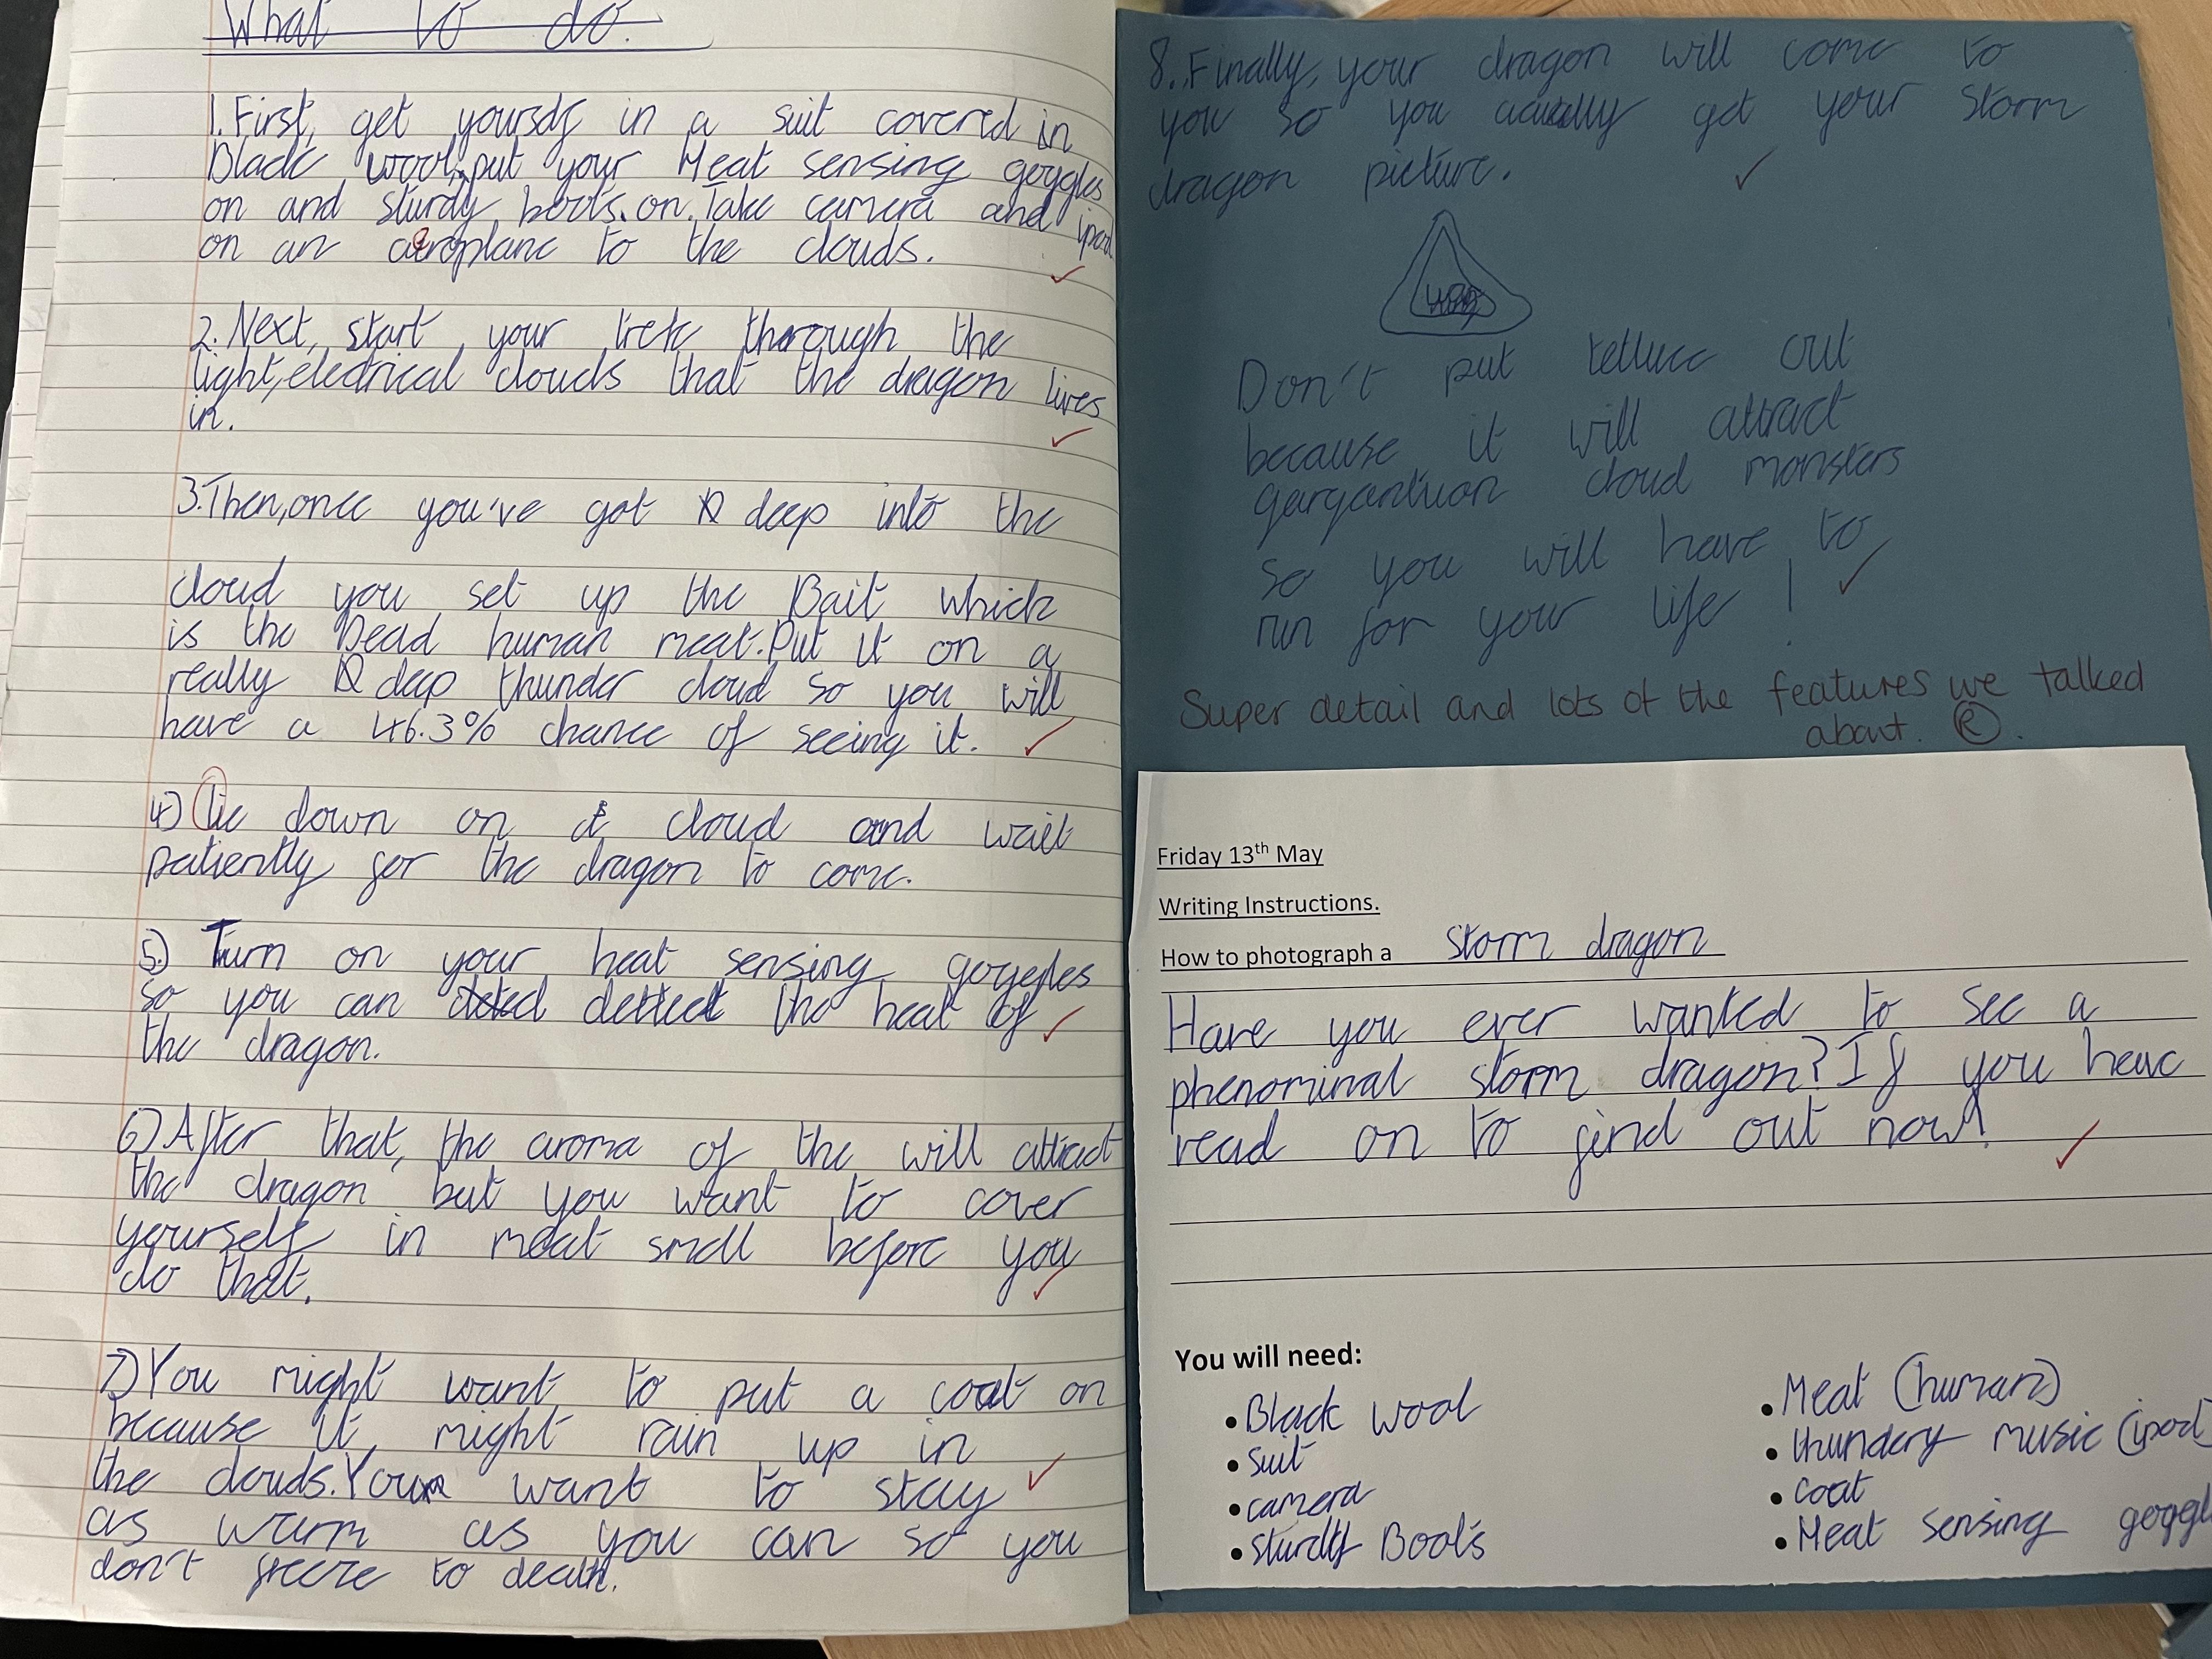 What to do.
1. First, get yourself in a suit covered in
Black wool, put your Heat sensing goggles
on and sturdy boots on. Take camera and ipod
on an aeroplane to the clouds.
2. Next, start your trek thorough the
light, electrical clouds that the dragon lives
in.
3. Then, once you've got deep into the
cloud you set up the Bait which
is the Dead human meat. Put it on a
really deep thunder cloud so you will
have a 46.3% chance of seeing it.
4) Lie down on a cloud and wait
patiently for the dragon to come.
5.) Turn on your heat sensing gogegles
so you can dettect the heat of
the dragon.
6) After that, the aroma of the will attract
the dragon but you want to cover
yourself in meat smell before you
do that.
7) You might want to put a coat on
because it might rain up in
the clouds. You want to stay
as warm as you can so you
don't freeze to death.
8. Finally, your dragon will come to
you so you get your storm
dragon picture.
Don't put out
because it will attract
gargantuan cloud monsters
so you will have to
run for your life!
Super detail and lots of the features we talked
about. R.
Friday 13th May
Writing Instructions.
How to photograph a storm dragon
Have you ever wanted to see a
phenominal storm dragon? If you have
read on to find out now!
You will need:
• Black wool
• suit
• camera
• sturdy Boots
• Meat (human)
• thundery music (ipod)
• coat
• Heat sensing